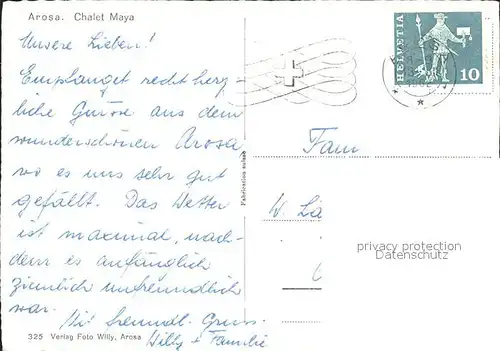 Arosa. Chalet Maya
Unsere Lieben!
Empfanget recht herz-
liche Grüsse aus dem
wunderschönen Arosa
wo es uns sehr gut
gefällt. Das Wetter
ist maximal, nach-
dem es anfänglich
ziemlich unfreundlich
war.
Mit freundl. Gruss
Willy + Familie
325 Verlag Foto Willy, Arosa
Fabrication suisse
HELVETIA
10
Fam
W. Lä
privacy protection
Datenschutz